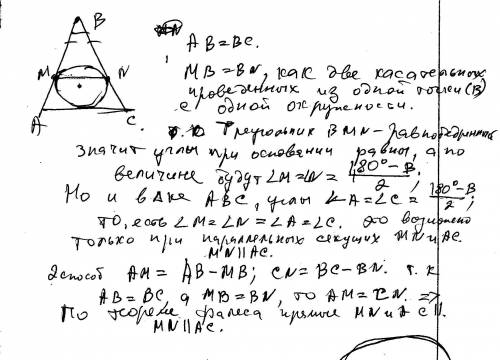 B
M N
A C
AB = BC.
MB = BN, как две касательных
проведенных из одной точки (B)
с одной окружности.
Треугольник BMN - равнобедренный
значит углы при основании равны, а по
величине будут ∠M = ∠N = 180° - B / 2;
Но и в ∆ке ABC, углы ∠A = ∠C = 180° - B / 2;
то, есть ∠M = ∠N = ∠A = ∠C. Это возможно
только при параллельных секущих MN и AC.
MN || AC.
2 способ AM = AB - MB; CN = BC - BN. т. к
AB = BC, а MB = BN, то AM = CN. =>
По теореме фалеса прямые MN и AC ||.
MN || AC.